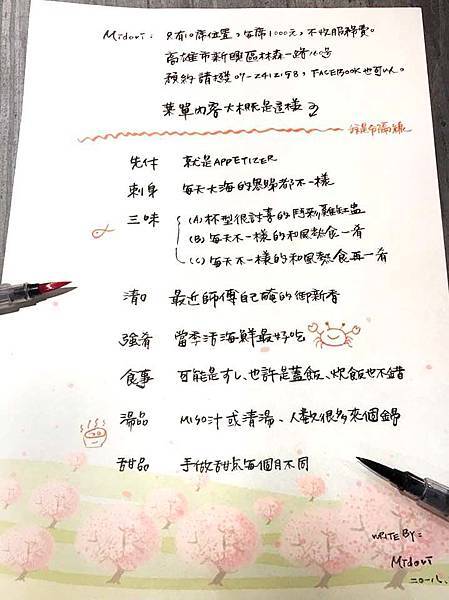 Midori: 只有10席位置，每席1000元，不收服務費。
高雄市新興區林森一路
預約請撥 07-2412158，FACEBOOK也可以。
菜單內容大概是這樣子
這是分隔線
先付 就是APPETIZER
刺身 每天大海的恩賜都不一樣
三味 (A) 杯型很討喜的鬥彩雞缸盅
(B) 每天不一樣的和風熱食一肴
(C) 每天不一樣的和風熱食再一肴
清口 最近師傅自己醃的御新香
強肴 當季活海鮮最好吃
食事 可能是すし、也許是蓋飯、炊飯也不錯
湯品 MISO汁或清湯、人數很多來個鍋
甜品 手做甜點每個月不同
WRITE BY:
Midori
二〇一八.